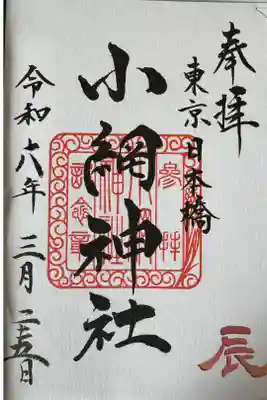 奉拝
東京日本橋
小網神社
令和六年三月二十五日
辰